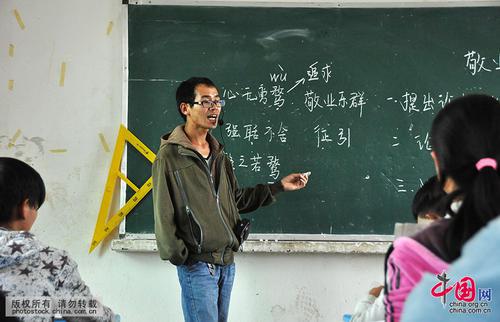 wù 追求 敬业
心无旁骛 敬业乐群 一、提出论
强聒不舍 征引 二、论
之若骛 三、
版权所有 请勿转载
photostock.china.com.cn
中国网
china.org.cn
china.com.cn